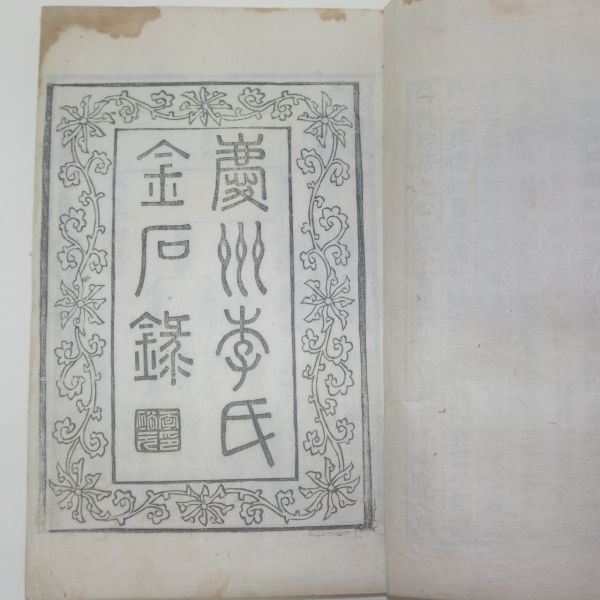 慶州李氏
金石錄